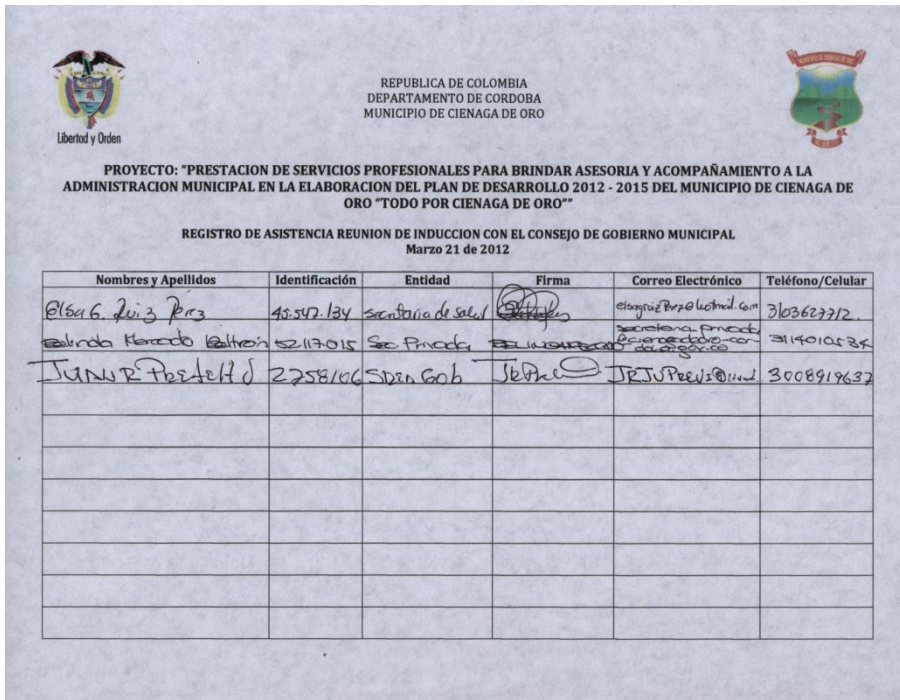 Libertad y Orden
MUNICIPIO DE CIENAGA DE ORO
REPUBLICA DE COLOMBIA
DEPARTAMENTO DE CORDOBA
MUNICIPIO DE CIENAGA DE ORO
PROYECTO: "PRESTACION DE SERVICIOS PROFESIONALES PARA BRINDAR ASESORIA Y ACOMPAÑAMIENTO A LA
ADMINISTRACION MUNICIPAL EN LA ELABORACION DEL PLAN DE DESARROLLO 2012 - 2015 DEL MUNICIPIO DE CIENAGA DE
ORO "TODO POR CIENAGA DE ORO""
REGISTRO DE ASISTENCIA REUNION DE INDUCCION CON EL CONSEJO DE GOBIERNO MUNICIPAL
Marzo 21 de 2012
Nombres y Apellidos Identificación Entidad Firma Correo Electrónico Teléfono/Celular
Elsa G. Ruiz Pérez 45.547.134 secretaria de salud 3103627712.
Belinda Mercado Beltrán 52117015 Sec Privada secretaria privada
JUAN R 2758106 3008919637